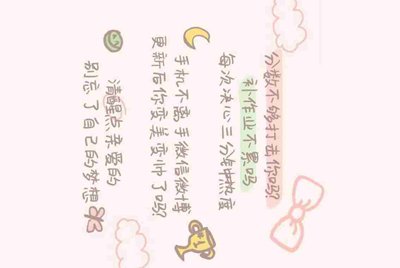 分数不够打击你吗?
补作业不累吗
每次决心三分钟热度
手机不离手微信微博
更新后你变美变帅了吗?
清醒点亲爱的
别忘了自己的梦想